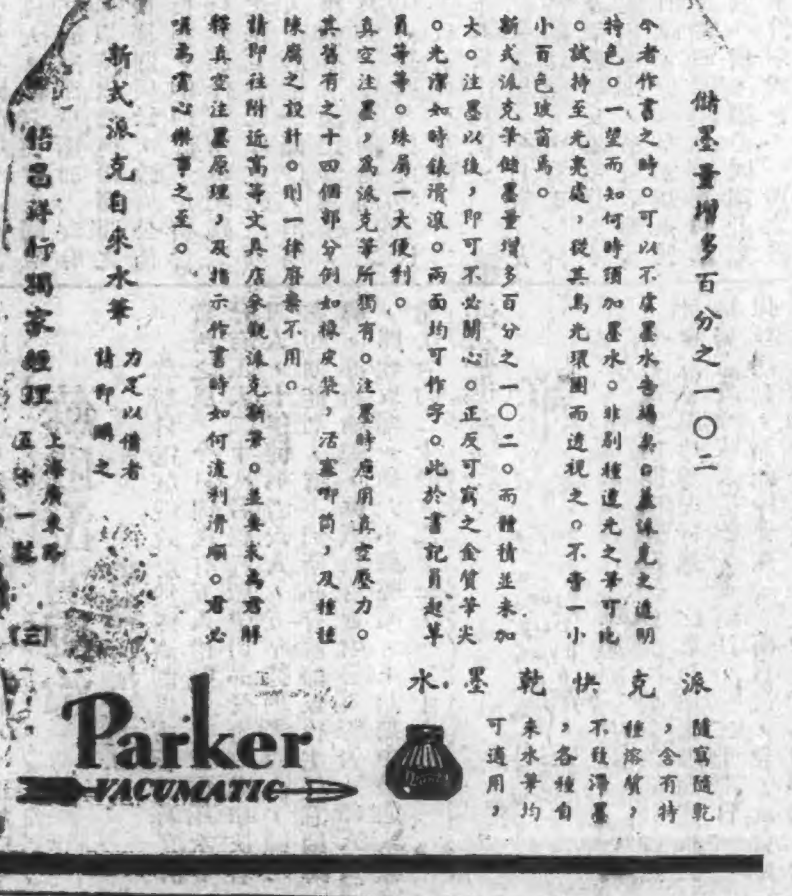 儲墨量增多百分之一〇二
今者作書之時。可以不虞墨水告竭矣。蓋派克之透明
特色。一望而知何時須加墨水。非別種遮光之筆可比
。試持至光亮處，從其烏光環圈而透視之。不啻一小
小百色玻窗焉。
新式派克筆儲墨量增多百分之一〇二。而體積並未加
大。注墨以後，即可不必關心。正反可寫之金質筆尖
。光潔如時錶滑滾。兩面均可作字。此於書記員起草
員等等。殊屬一大便利。
真空注墨，為派克筆所獨有。注墨時應用真空壓力。
其舊有之十四個部分例如橡皮袋，活塞唧筒，及種種
陳腐之設計。則一律廢棄不用。
請即往附近高等文具店參觀派克新筆。並要求為君解
釋真空注墨原理，及指示作書時如何流利滑順。君必
嘆為賞心樂事之至。
新式派克自來水筆
力足以備者
請即購之
怡昌洋行獨家經理
上海廣東路
五十一號
【三】
派克快乾墨水
隨寫隨乾
，含有特
種溶質，
不致滯墨
，各種自
來水筆均
可適用，
Parker
VACUMATIC